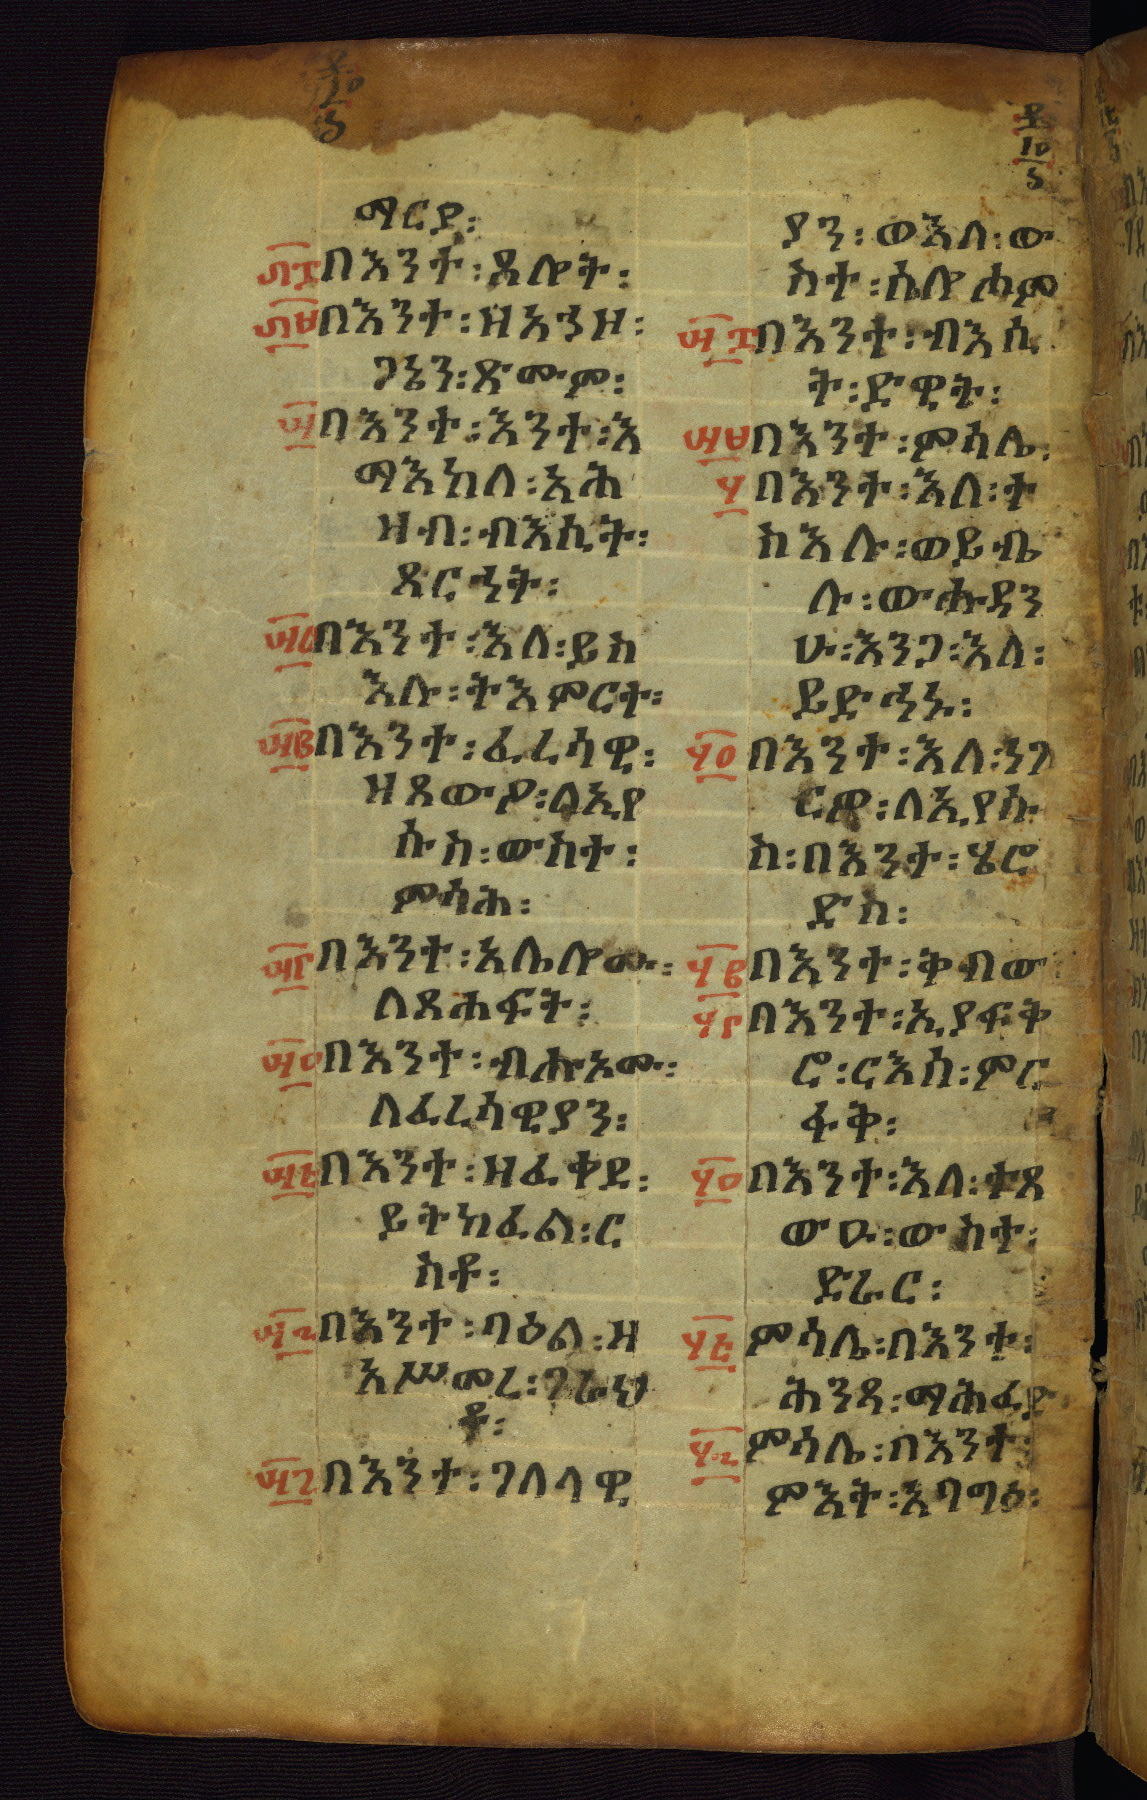 ማርያ፡
፴፰ በእንተ፡ጸሎት፡
፴፱ በእንተ፡ዘአኀዘ፡
ጋኔን፡ጽሙም፡
፵ በእንተ፡እንተ፡እ
ማእከለ፡አሕ
ዛብ፡ብእሲት፡
ጸርኀት፡
፵፩ በእንተ፡እለ፡ይስ
እሉ፡ትእምርተ፡
፵፪ በእንተ፡ፈሪሳዊ፡
ዘጸውዖ፡ለኢየ
ሱስ፡ውስተ፡
ምሳሕ፡
፵፫ በእንተ፡አሌሎሙ፡
ለጸሐፍት፡
፵፬ በእንተ፡ብሑአሙ፡
ለፈሪሳዊያን፡
፵፭ በእንተ፡ዘፈቀደ፡
ይትከፈል፡ር
ስቶ፡
፵፮ በእንተ፡ባዕል፡ዘ
አሥመረ፡ገራህ
ቶ፡
፵፯ በእንተ፡ገለላዊ
ያን፡ወእለ፡ው
ስተ፡ሰሎሐም
፵፰ በእንተ፡ብእሲ
ት፡ድዊት፡
፵፱ በእንተ፡ምሳሌ፡
፶ በእንተ፡እለ፡ተ
ስእሉ፡ወይቤ
ሉ፡ውሑዳን
ሁ፡እንጋ፡እለ፡
ይድኅኑ፡
፶፩ በእንተ፡እለ፡ነገ
ርዎ፡ለኢየሱ
ስ፡በእንተ፡ሄሮ
ድስ፡
፶፪ በእንተ፡ቅብው
፶፫ በእንተ፡ኢያፍቅ
ሮ፡ርእሰ፡ምር
ፋቅ፡
፶፬ በእንተ፡እለ፡ተጸ
ውዑ፡ውስተ፡
ድራር፡
፶፭ ምሳሌ፡በእንተ፡
ሕንጻ፡ማሕፈድ
፶፮ ምሳሌ፡በእንተ፡
ምእት፡አባግዕ፡